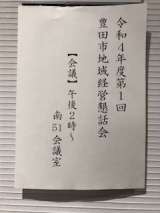 令和4年度第1回
豊田市地域経営懇話会
【会議】午後2時〜
南51会議室